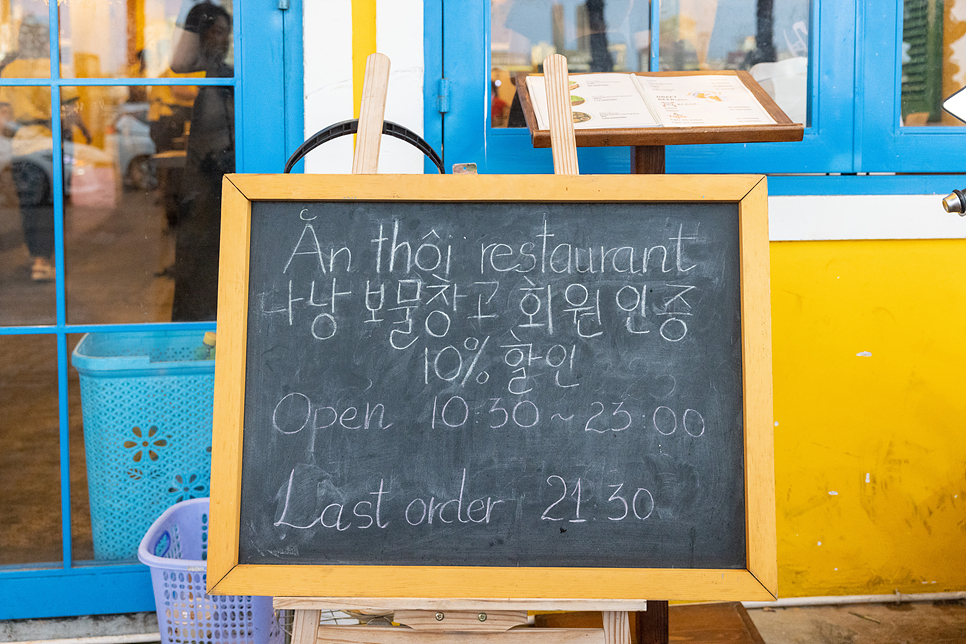 Ăn thôi restaurant
다낭 보물창고 회원 인증
10% 할인
Open 10:30 ~ 23:00
Last order 21:30